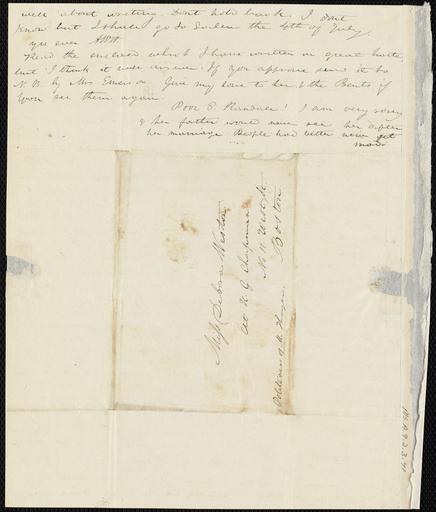 well about writing. Don't hold back. I don't
know but I shall go to Salem the 4th of July
yrs ever AWW.
Read the enclosed which I have written in great haste
but I think it will answer. If you approve send it to
N. B. by Mrs Emerson. Give my love to her & the Bents if
you see them again.
Poor E. ! I am very sorry
& her father would never see her after
her marriage People had better never get
mad
Miss Debora Weston
At H G Chapman
No 11 West St
Boston
Politeness of Mr